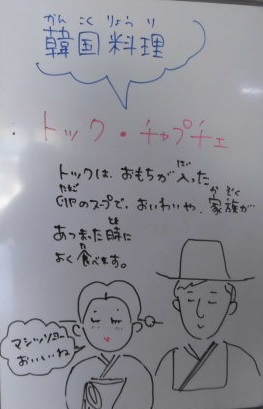 かんこくりょうり
韓国料理
トック・チャプチェ
トックは、おもちが入った
はい
スープで、おいわいや、家族が
かぞく
あつまった時に
とき
よく食べます。
た
マシッソヨー
おいしいね